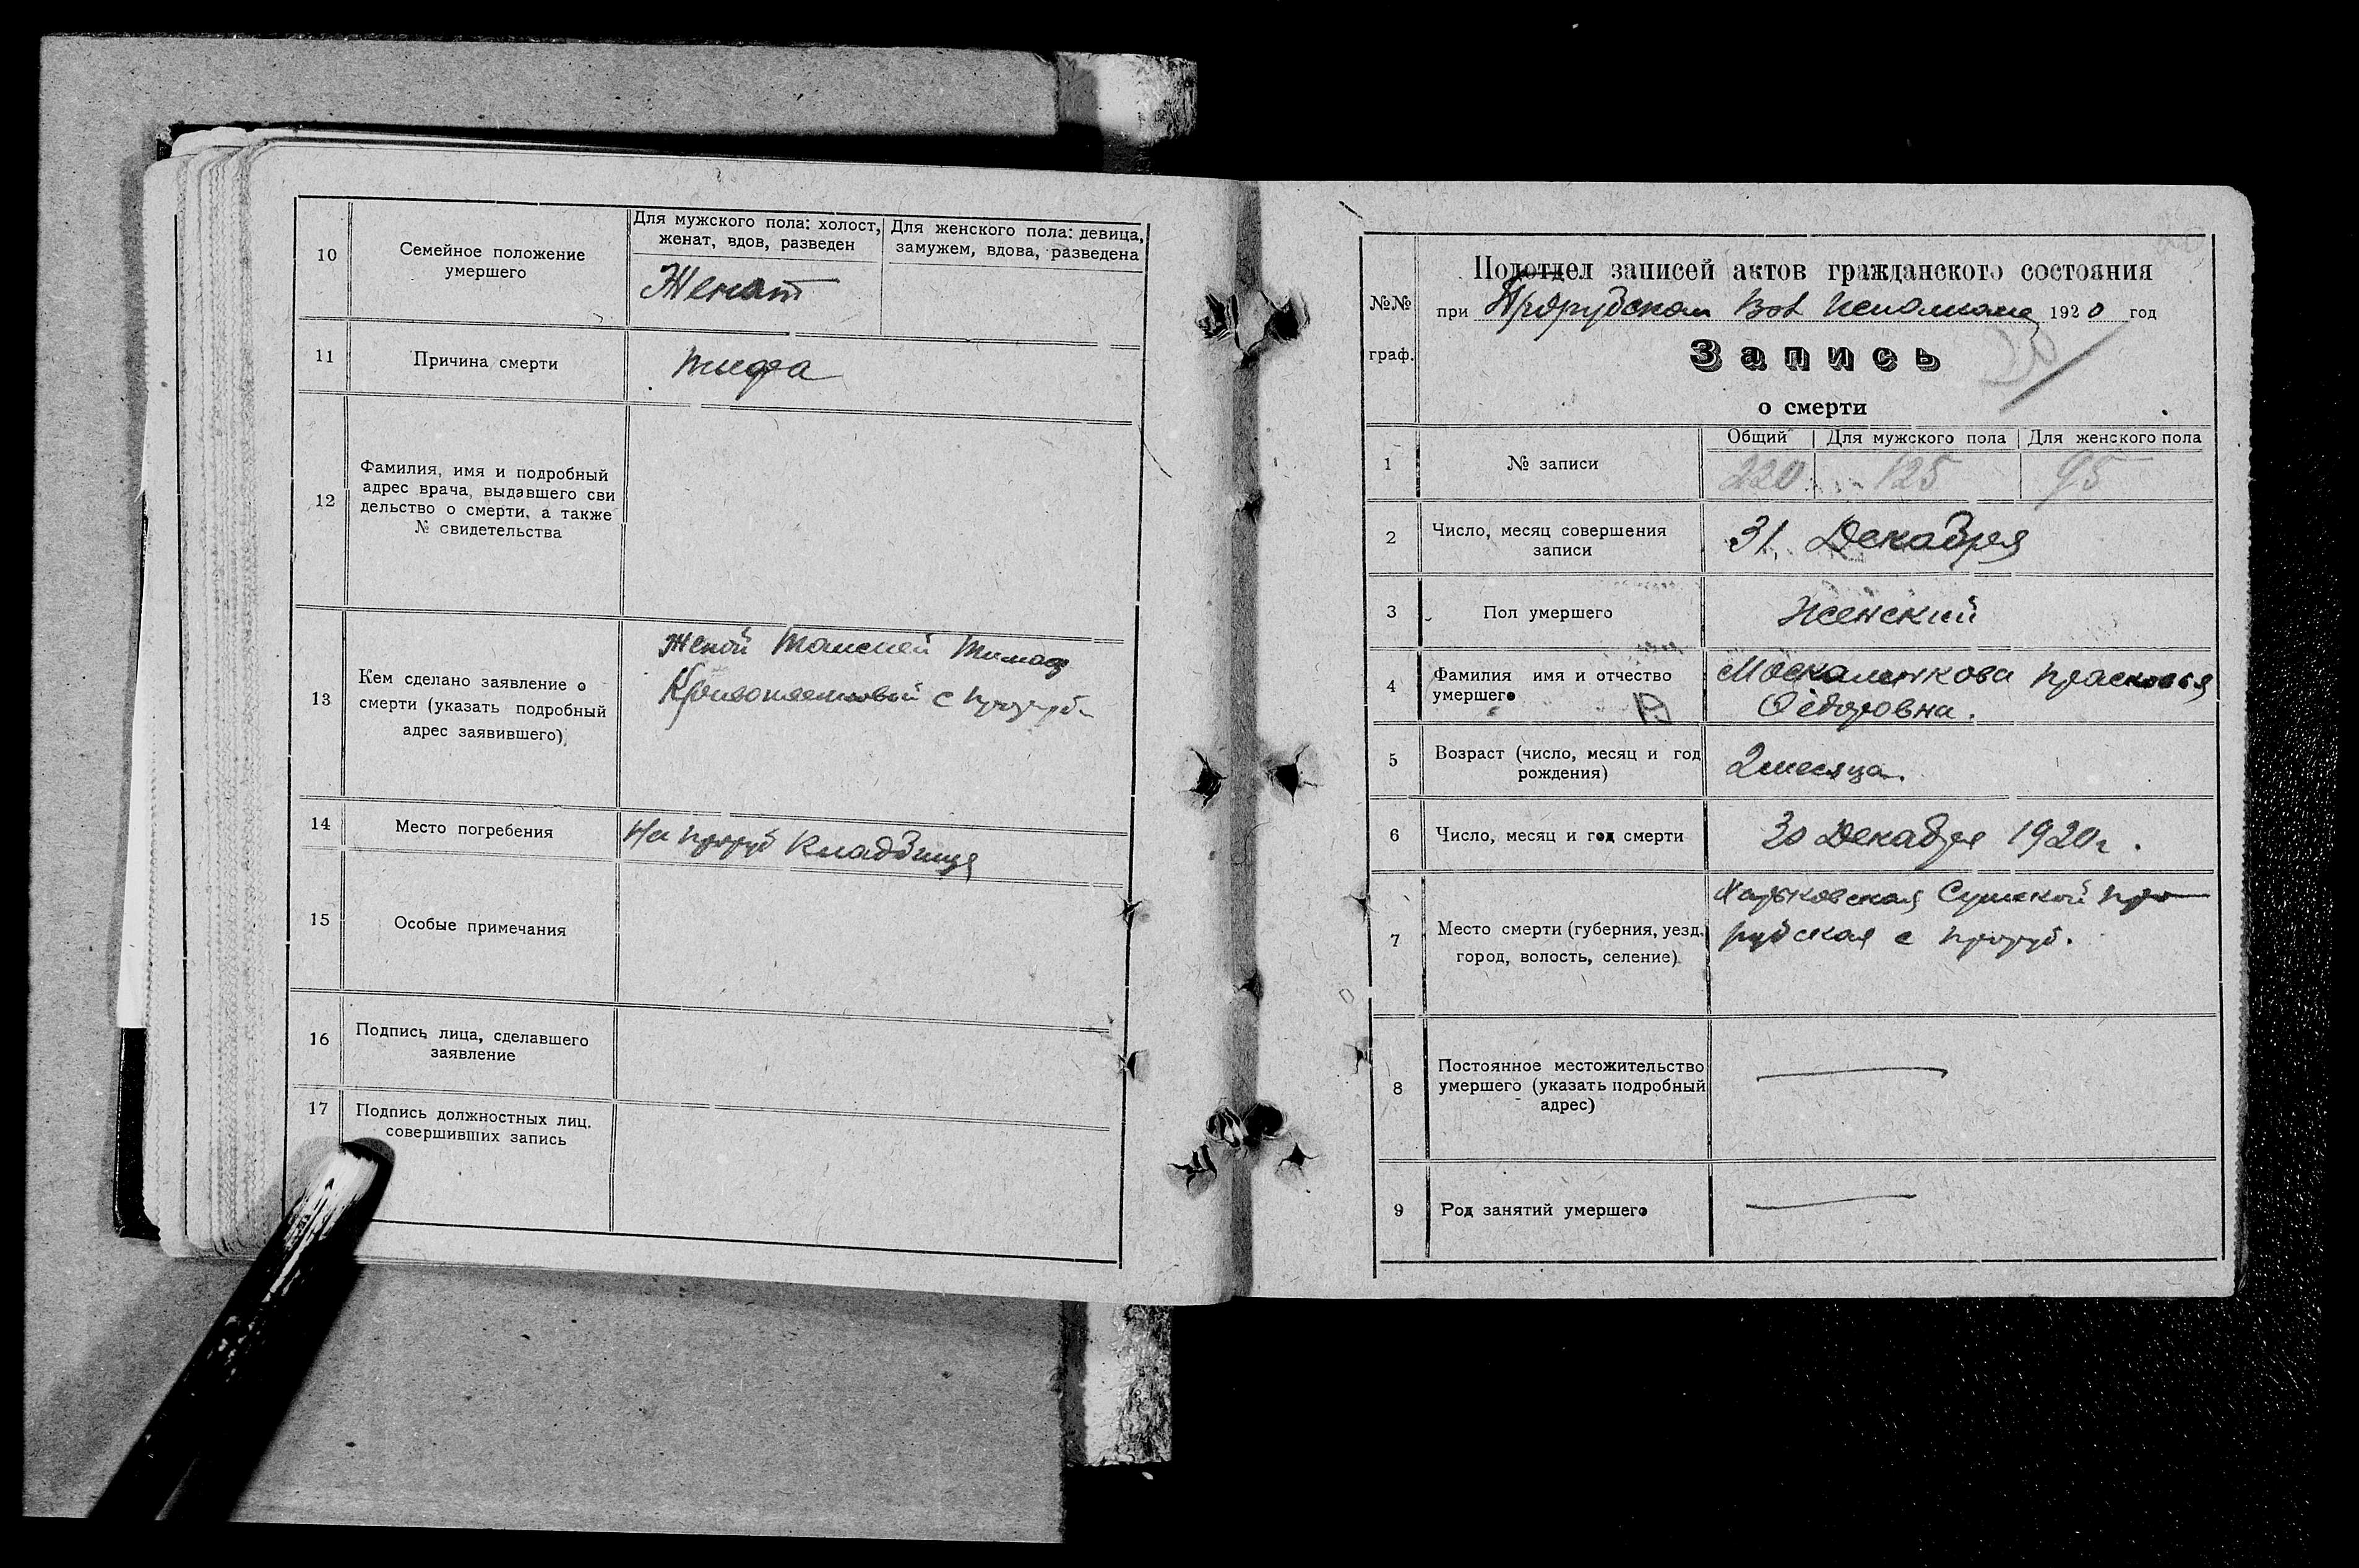 10
Семейное положение
умершего
Для мужского пола: холост,
женат, вдов, разведен
Для женского пола: девица,
замужем, вдова, разведена
Женат
11
Причина смерти
тифа
12
Фамилия, имя и подробный
адрес врача, выдавшего сви
дельство о смерти, а также
№ свидетельства
13
Кем сделано заявление о
смерти (указать подробный
адрес заявившего)
Женой
с
14
Место погребения
На Кладбище
15
Особые примечания
16
Подпись лица, сделавшего
заявление
17
Подпись должностных лиц,
совершивших запись
№№
граф.
Подотдел записей актов гражданского состояния
при Прорубском Вол 1920 год
Запись
о смерти
1
№ записи
Общий
Для мужского пола
Для женского пола
220
125
95
2
Число, месяц совершения
записи
31 Декабря
3
Пол умершего
Женский
4
Фамилия имя и отчество
умершего
Москаленкова Прасковья
Федоровна.
5
Возраст (число, месяц и год
рождения)
2 месяца.
6
Число, месяц и год смерти
30 Декабря 1920 г.
7
Место смерти (губерния, уезд,
город, волость, селение)
Харьковская Сумской Про
рубская с Проруб.
8
Постоянное местожительство
умершего (указать подробный
адрес)
9
Род занятий умершего